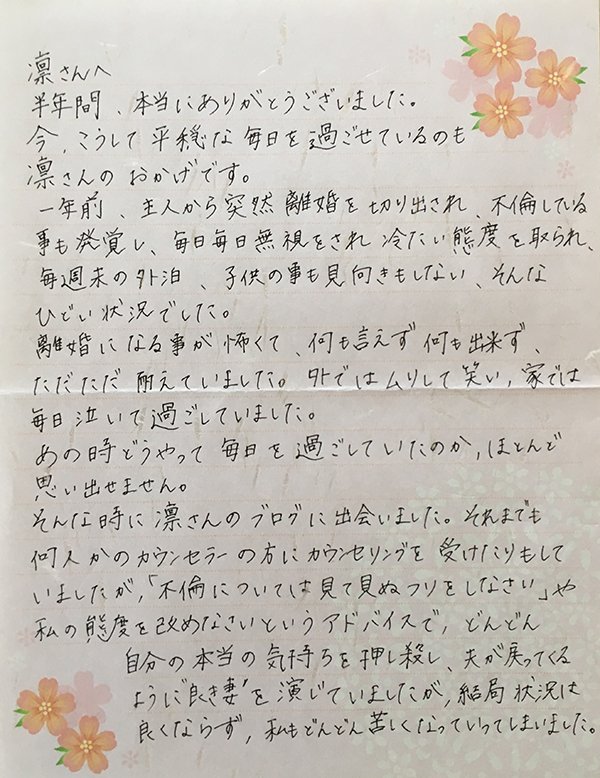 凛さんへ
半年間、本当にありがとうございました。
今、こうして平穏な毎日を過ごせているのも
凛さんのおかげです。
一年前、主人から突然離婚を切り出され、不倫している
事も発覚し、毎日毎日無視をされ冷たい態度を取られ、
毎週末の外泊、子供の事も見向きもしない、そんな
ひどい状況でした。
離婚になる事が怖くて、何も言えず何も出来ず、
ただただ耐えていました。外ではムリして笑い、家では
毎日泣いて過ごしていました。
あの時どうやって毎日を過ごしていたのか、ほとんど
思い出せません。
そんな時に凛さんのブログに出会いました。それまでも
何人かのカウンセラーの方にカウンセリングを受けたりもして
いましたが、「不倫については見て見ぬフリをしなさい」や
私の態度を改めなさいというアドバイスで、どんどん
自分の本当の気持ちを押し殺し、夫が戻ってくる
ように“良き妻”を演じていましたが、結局状況は
良くならず、私もどんどん苦しくなっていってしまいました。